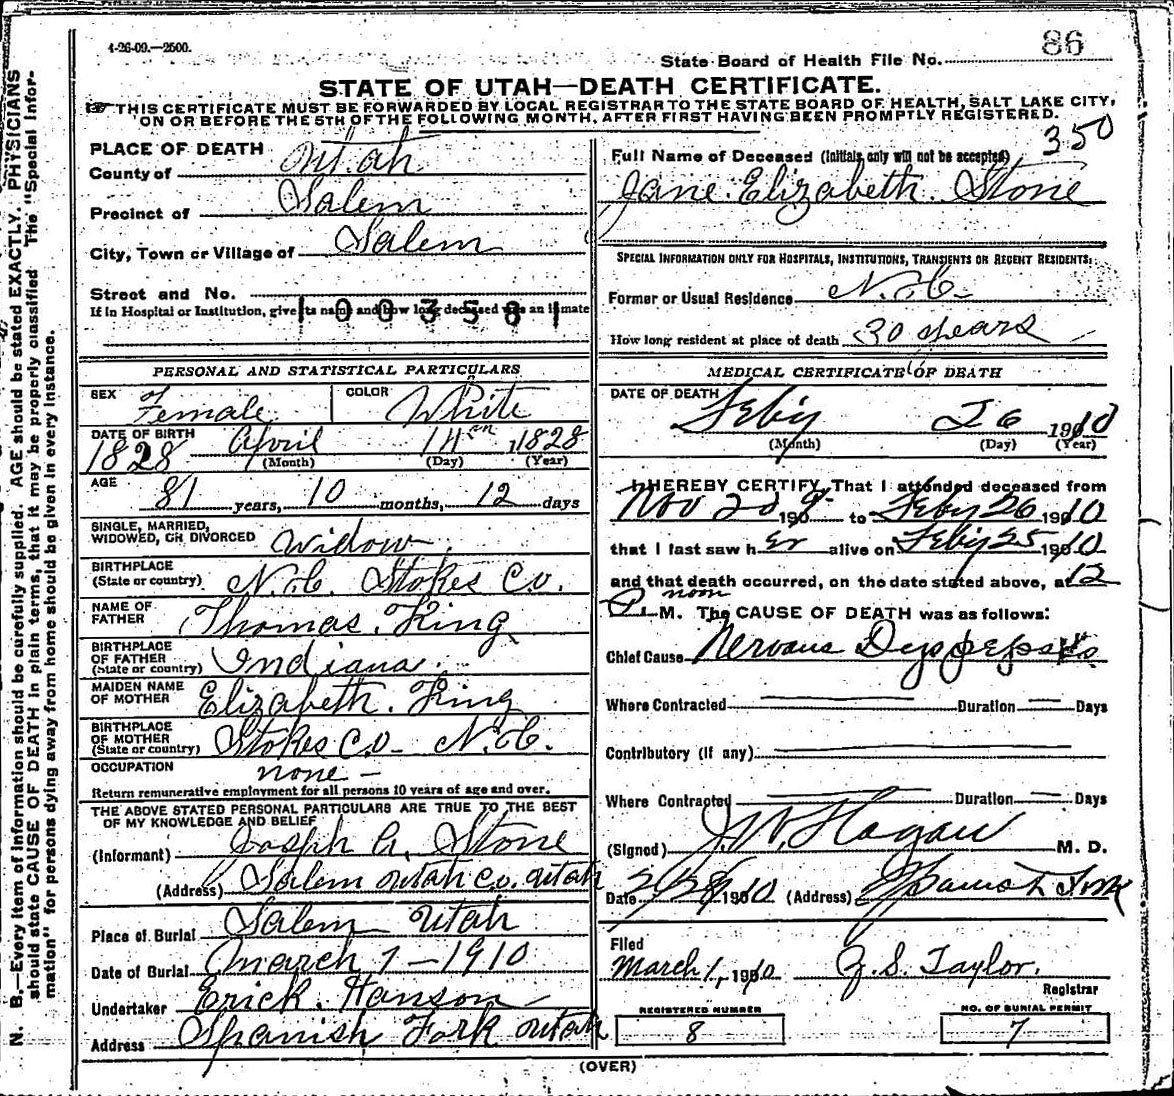 4-26-09.—2500.
86
State Board of Health File No.
STATE OF UTAH—DEATH CERTIFICATE.
THIS CERTIFICATE MUST BE FORWARDED BY LOCAL REGISTRAR TO THE STATE BOARD OF HEALTH, SALT LAKE CITY,
ON OR BEFORE THE 5TH OF THE FOLLOWING MONTH, AFTER FIRST HAVING BEEN PROMPTLY REGISTERED.
350
PLACE OF DEATH
County of Utah
Precinct of Salem
City, Town or Village of Salem
Street and No.
If in Hospital or Institution, give its name and how long deceased was an inmate
1003581
Full Name of Deceased (Initials only will not be accepted)
Jane Elizabeth Stone
SPECIAL INFORMATION ONLY FOR HOSPITALS, INSTITUTIONS, TRANSIENTS OR RECENT RESIDENTS:
Former or Usual Residence N.C.
How long resident at place of death 30 years
PERSONAL AND STATISTICAL PARTICULARS
SEX Female COLOR White
DATE OF BIRTH April 14th 1828
1828 (Month) (Day) (Year)
AGE 81 years, 10 months, 12 days
SINGLE, MARRIED,
WIDOWED, OR DIVORCED Widow
BIRTHPLACE
(State or country) N.C. Stokes Co.
NAME OF
FATHER Thomas King
BIRTHPLACE
OF FATHER
(State or country) Indiana
MAIDEN NAME
OF MOTHER Elizabeth King
BIRTHPLACE
OF MOTHER
(State or country) Stokes Co- N.C.
OCCUPATION none -
Return remunerative employment for all persons 10 years of age and over.
THE ABOVE STATED PERSONAL PARTICULARS ARE TRUE TO THE BEST
OF MY KNOWLEDGE AND BELIEF
(Informant) Joseph A. Stone
(Address) Salem Utah Co. Utah
Place of Burial Salem Utah
Date of Burial March 1 - 1910
Undertaker Erick Hanson
Address Spanish Fork Utah
MEDICAL CERTIFICATE OF DEATH
DATE OF DEATH Feby 26 1910
(Month) (Day) (Year)
I HEREBY CERTIFY, That I attended deceased from
Nov 190 to Feby 26 1910
that I last saw her alive on Feby 25 1910
and that death occurred, on the date stated above, at 12
noon
P.M. The CAUSE OF DEATH was as follows:
Chief Cause Nervous
Where Contracted Duration Days
Contributory (if any)
Where Contracted Duration Days
(Signed) J.W. Hagan M. D.
Date 2/28 1910 (Address) Spanish Fork
Filed
March 1, 1910 Z.S. Taylor.
Registrar
REGISTERED NUMBER
8
NO. OF BURIAL PERMIT
7
(OVER)
N. B.—Every item of information should be carefully supplied. AGE should be stated EXACTLY. PHYSICIANS
should state CAUSE OF DEATH in plain terms, that it may be properly classified. The "Special Infor-
mation" for persons dying away from home should be given in every instance.